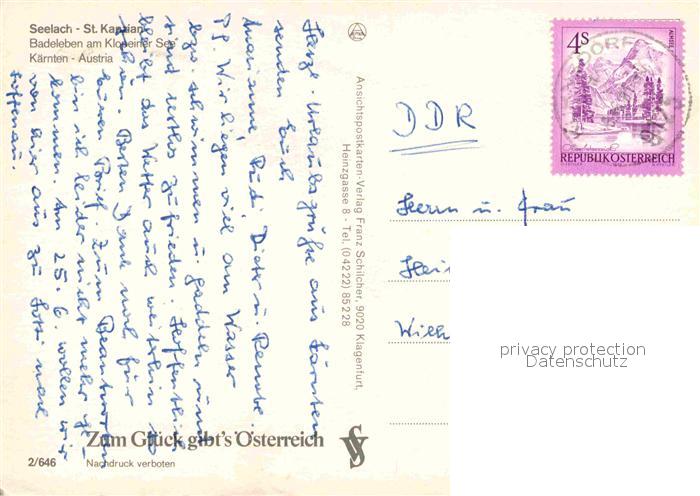 Seelach - St. Kanzian
Badeleben am Klopeiner See
Kärnten - Austria
Herzl. Urlaubsgrüße aus Kärnten
senden Euch
Marianne, Rudi, Dieter u. Renate
P.S. Wir liegen viel am Wasser
bzw. schwimmen u. paddeln und
sind restlos zufrieden. Hoffentlich
bleibt das Wetter auch weiterhin so
schön. Besten Dank noch für
Euren Brief. Zum Beantworten
bin ich leider nicht mehr ge-
kommen. Am 25.6. wollen wir
von hier aus zu Lotti nach
Zum Glück gibt's Österreich
2/646
Nachdruck verboten
Ansichtspostkarten-Verlag Franz Schilcher, 9020 Klagenfurt,
Heinzgasse 8 - Tel. (0 42 22) 85 2 28
4S
REPUBLIK ÖSTERREICH
DDR
Herrn u. Frau
privacy protection
Datenschutz